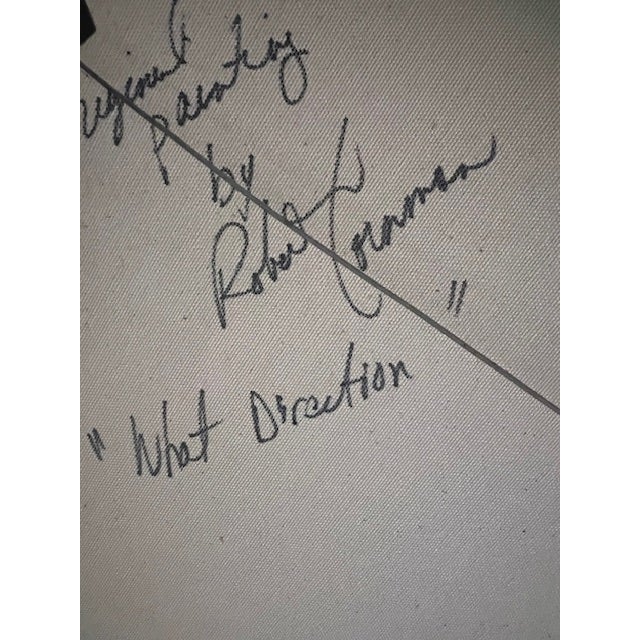 Original
Painting
by
Robert
"What Direction"